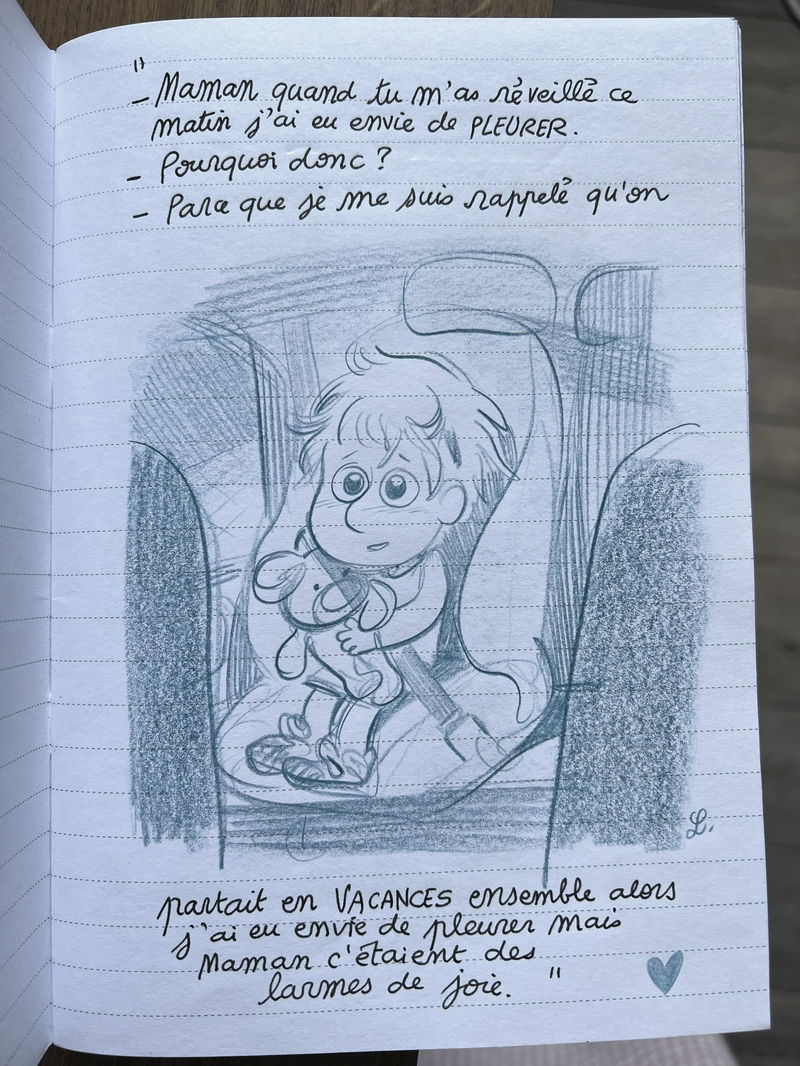 "
- Maman quand tu m'as réveillé ce
matin j'ai eu envie de PLEURER.
- Pourquoi donc ?
- Parce que je me suis rappelé qu'on
L.
partait en VACANCES ensemble alors
j'ai eu envie de pleurer mais
Maman c'étaient des
larmes de joie. "